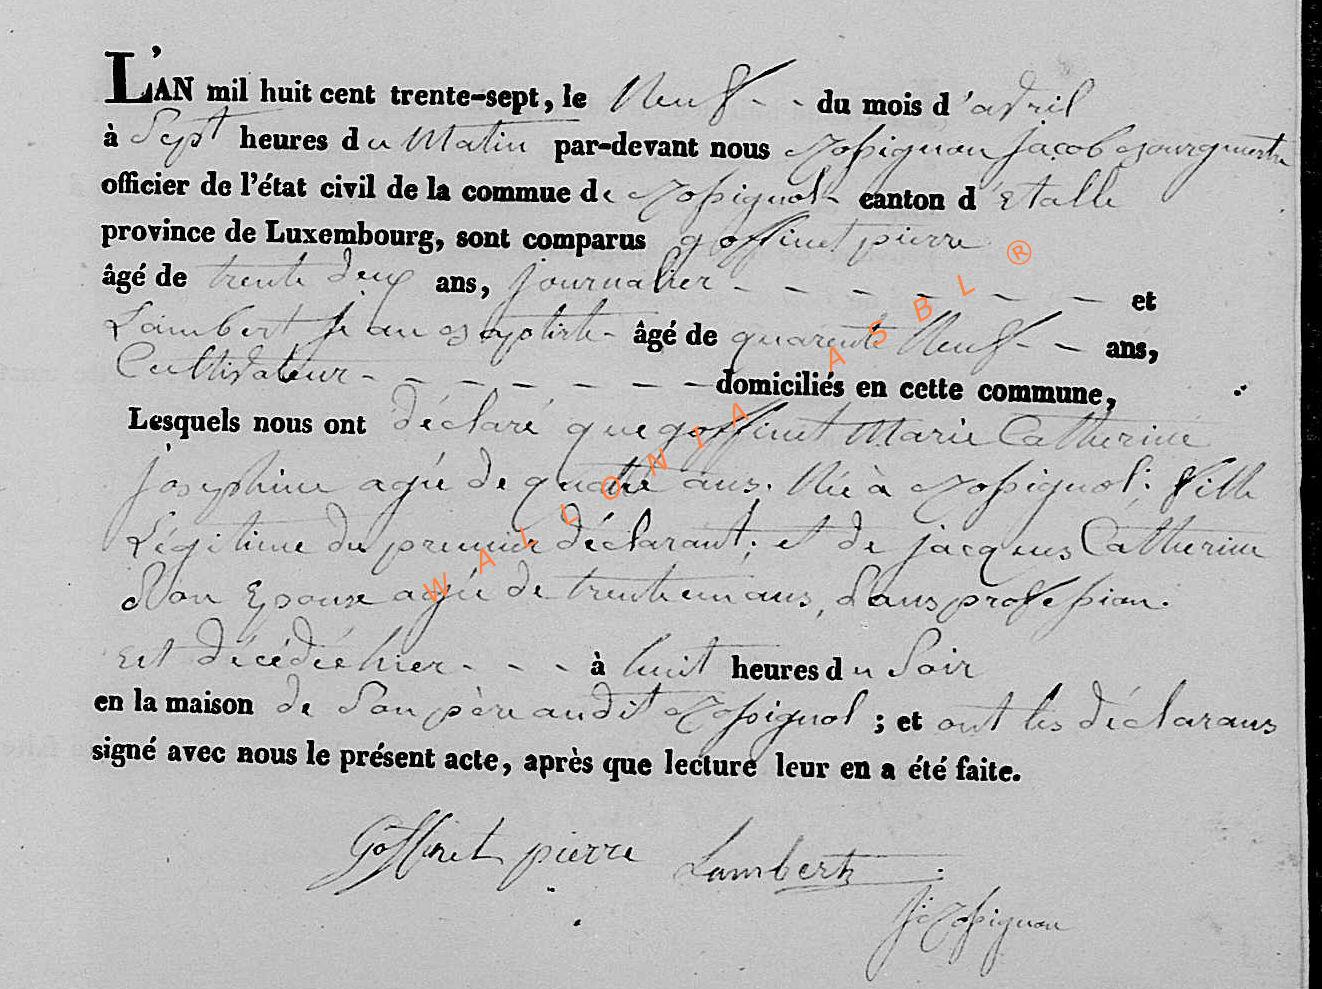 L'AN mil huit cent trente-sept, le Neuf - - du mois d'avril
à Sept heures du Matin par-devant nous Rossignon Jacob Bourgmestre
officier de l'état civil de la commue de Rossignol - canton d'Etalle
province de Luxembourg, sont comparus goffinet pierre
âgé de trente deux ans, journalier - - - - - - - et
Lambert Jean Baptiste - âgé de quarente Neuf - - ans,
Cultivateur - - - - - - - - domiciliés en cette commune,
Lesquels nous ont déclaré que goffinet Marie Catherine
josephine agée de quatre ans. Née à Rossignol; fille
Légitime du premier déclarant; et de jacques Catherine
Son Epouse agée de trente un ans, Sans profession.
Est décédée hier - - - à huit heures du Soir
en la maison de Son père audit Rossignol ; et ont les déclarans
signé avec nous le présent acte, après que lecture leur en a été faite.
Goffinet pierre Lambert
J: Rossignon
WALLONIA ASBL ®